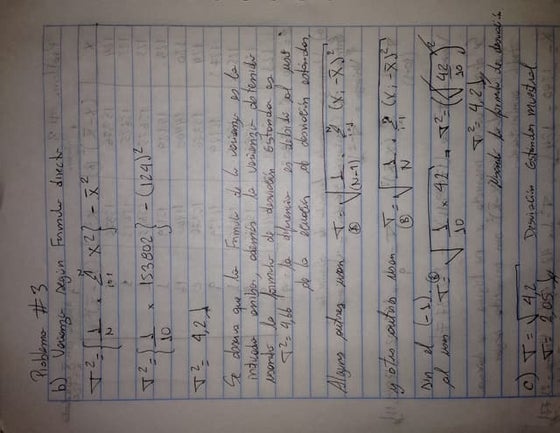 Problema #3
b) Varianza según Formula directa
∇² = { 1/N × Σ x² } − x̄²
∇² = { 1/10 × 153802 } − (124)²
∇² = 4,2
Se observa que la Formula de la varianza es la
indicada arriba, además la varianza obtenida
usando la formula de desviación estandar es
∇² = 4,66 la diferencia es debido al usar
de la ecuación de desviación estandar.
Algunos autores usan ∇ = √ 1/(N-1) × Σ (xi − x̄)²
y otros autores usan ∇ = √ 1/N × Σ (xi − x̄)²
sin el (−1)
al usar ∇ = √ 1/10 × 42 → ∇² = (√ 42/10)²
∇² = 4,2
usando la formula de desviación
c) ∇ = √4,2 Desviación estandar muestral
∇ = 2,05